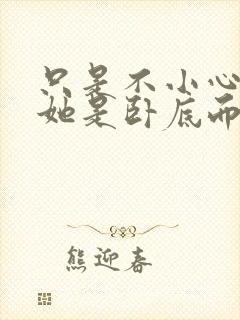 只是不小心
她是卧底而
熊迎春